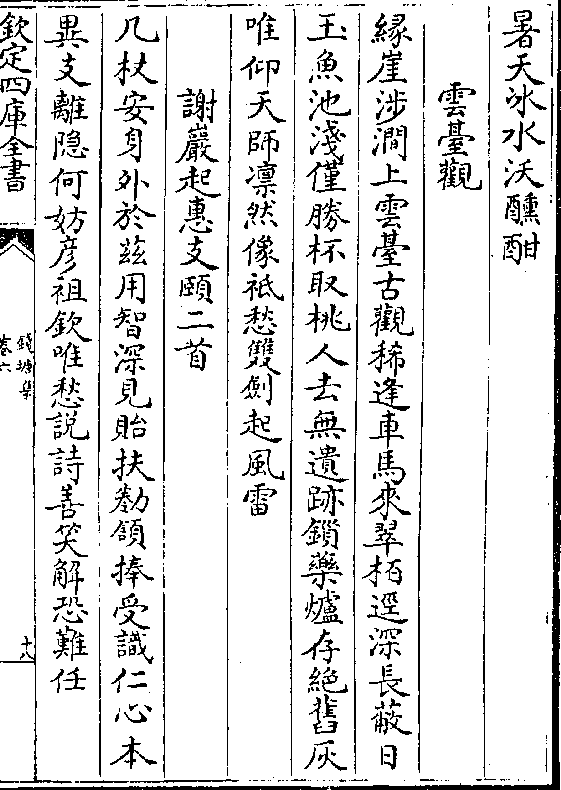 暑天冰水沃醺酣
雲臺觀
緣崖涉澗上雲臺古觀稀逢車馬來翠栢逕深長蔽日
玉魚池淺僅勝杯取桃人去無遺跡鎖藥爐存絶舊灰
唯仰天師凛然像祇愁雙劍起風雷
謝巖起惠支頤二首
几杖安身外於兹用智深見貽扶勌頷捧受識仁心本
異支離隐何妨彦祖欽唯愁説詩善笑解恐難任
欽定四庫全書
錢塘集
卷六
十八